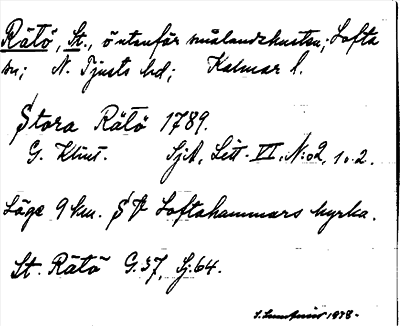 Rätö, St., ö utanför smålandskusten; Lofta
sn; N. Tjusts hd; Kalmar l.
Stora Rätö 1789.
G. Klint. SjA, Litt. VI, N:o 2, 1. 2.
Läge 9 km. SV Loftahammars kyrka.
St. Rätö G.37, Sj.64.
1938.